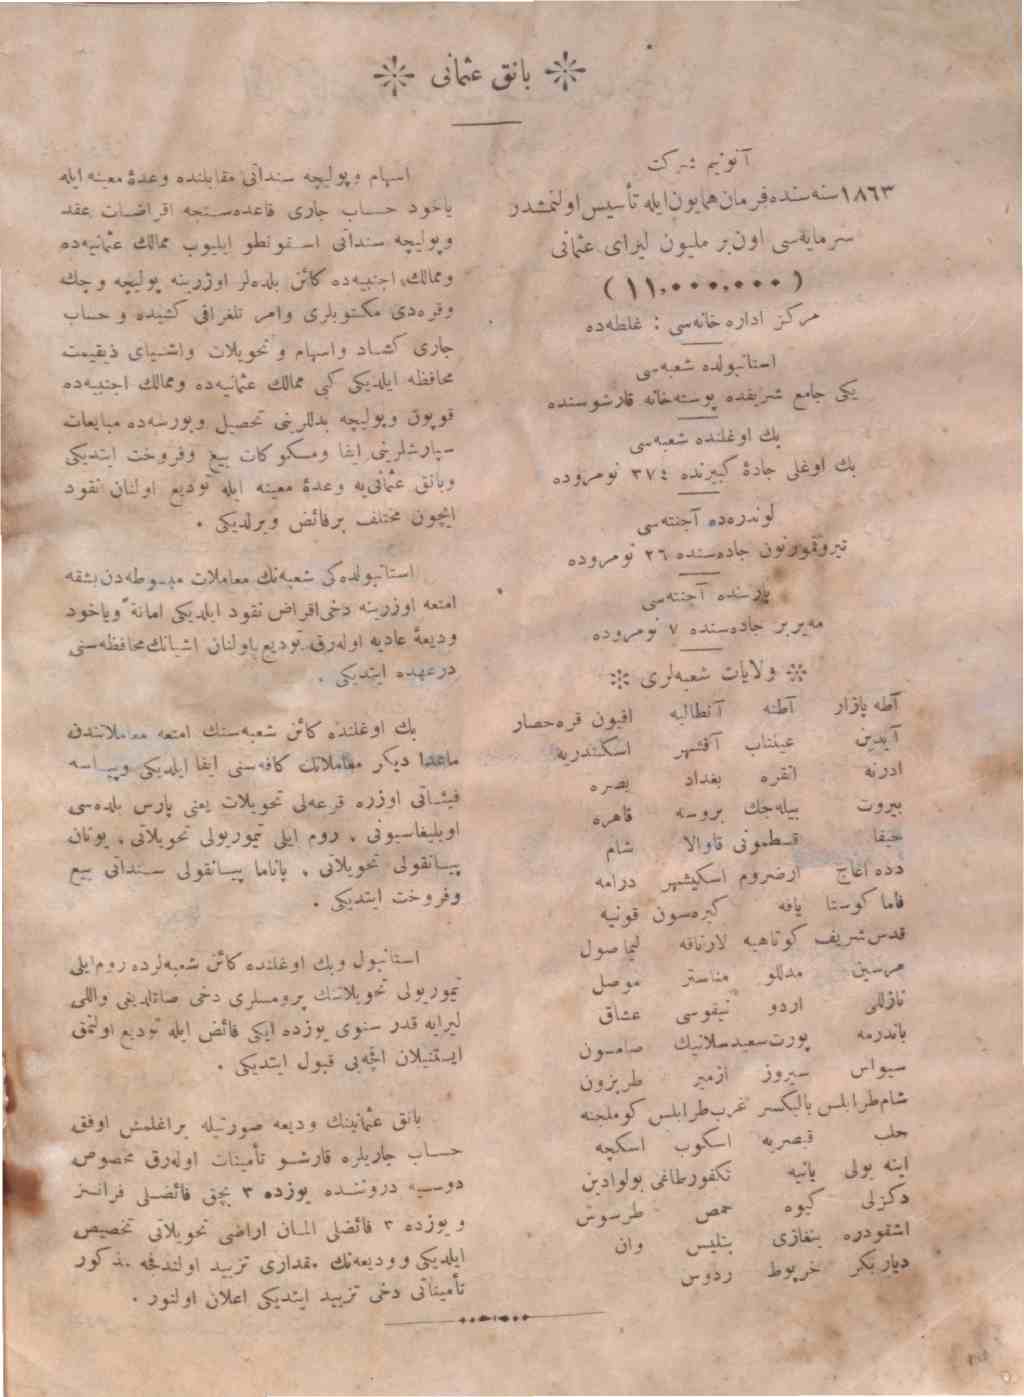 بانق عثمانی
آنونیم شرکت
١٨٦٣ سنه‌سنده فرمان همایون ایله تأسیس اولنمشدر
سرمایه‌سی اون بر ملیون لیرای عثمانی
( ١١,٠٠٠,٠٠٠ )
مرکز اداره خانه‌سی : غلطه‌ده
استانبولده شعبه‌سی
یکی جامع شریفده پوسته‌خانه قارشوسنده
بك اوغلنده شعبه‌سی
بك اوغلی جادۀ کبیرنده ٣٧٤ نومروده
لوندره‌ده آجنته‌سی
تیروغمورتون جاده‌سنده ٢٦ نومروده
پارسنده آجنته‌سی
مه‌یربر جاده‌سنده ٧ نومروده
ولایات شعبه‌لری
آطه پازار آطنه آنطالیه افیون قره‌حصار
آیدین عینتاب آقشهر اسکندریه
ادرنه انقره بغداد بصره
بیروت بیله‌جك بروسه قاهره
حیفا قسطمونی قاوالا شام
دده اغاج ارضروم اسکیشهر درامه
فاماکوستا یافه کیره‌سون قونیه
قدس شریف کوتاهیه لارناقه لیماصول
مرسین مدللو مناستر موصل
نازللی اردو نیقوسی عشاق
باندرمه پورت سعید سلانیك صامسون
سیواس سیروز ازمیر طربزون
شام طرابلس بالیکسر غرب طرابلس کوملجنه
حلب قیصریه اسکوب اسکچه
اینه بولی یانیه تکفورطاغی بولوادین
دکزلی کیوه حمص طرسوس
اشقودره بنغازی بتلیس وان
دیاربکر خرپوط ردوس
اسهام وپولیچه سنداتی مقابلنده وعدۀ معینه ایله
یاخود حساب جاری قاعده‌سنجه اقراضات عقد
وپولیچه سنداتی اسقونطو ایلیوب ممالك عثمانیه‌ده
وممالك اجنبیه‌ده کائن بلده‌لر اوزرینه پولیچه وچك
وقره‌دی مکتوبلری وامر تلغرافی کشیده و حساب
جاری کشاد واسهام و تحویلات واشیای ذیقیمت
محافظه ایلدیکی کبی ممالك عثمانیه‌ده وممالك اجنبیه‌ده
قوپون وپولیچه بدللرینی تحصیل وبورسه‌ده مبایعات
سپارشلرینی ایفا ومسکوکات بیع وفروخت ایتدیکی
وبانق عثمانی‌یه وعدۀ معینه ایله تودیع اولنان نقود
ایچون مختلف بر فائض ویرلدیکی .
استانبولده‌کی شعبه‌نك معاملات مبسوطه‌دن بشقه
امتعه اوزرینه دخی اقراض نقود ایلدیکی امانةً ویاخود
ودیعۀ عادیه اوله‌رق تودیع اولنان اشیانك محافظه‌سنی
درعهده ایتدیکی .
بك اوغلنده کائن شعبه‌سنك امتعه معاملاتندن
ماعدا دیکر معاملاتك کافه‌سنی ایفا ایلدیکی وپیاسه
فیئاتی اوزره قرعه‌لی تحویلات یعنی پارس بلده‌سی
اوبلیغاسیونی ، روم ایلی تیموریولی تحویلاتی ، یونان
پیسانقولی تحویلاتی ، پاناما پیسانقولی سنداتی بیع
وفروخت ایتدیکی .
استانبول وبك اوغلنده کائن شعبه‌لرده روم‌ایلی
تیموریولی تحویلاتنك پرومسلری دخی صاتلدیغی واللی
لیرایه قدر سنوی یوزده ایکی فائض ایله تودیع اولنمق
ایستنیلان اقچه‌یی قبول ایتدیکی .
بانق عثمانینك ودیعه صورتیله براغلمش اوفق
حساب جاریلره قارشو تأمینات اوله‌رق مخصوص
دوسیه دروننده یوزده ٣ بچق فائضلی فرانسز
و یوزده ٣ فائضلی المان اراضی تحویلاتی تخصیص
ایلدیکی وودیعه‌نك مقداری تزیید اولندقجه مذکور
تأمیناتی دخی تزیید ایتدیکی اعلان اولنور .